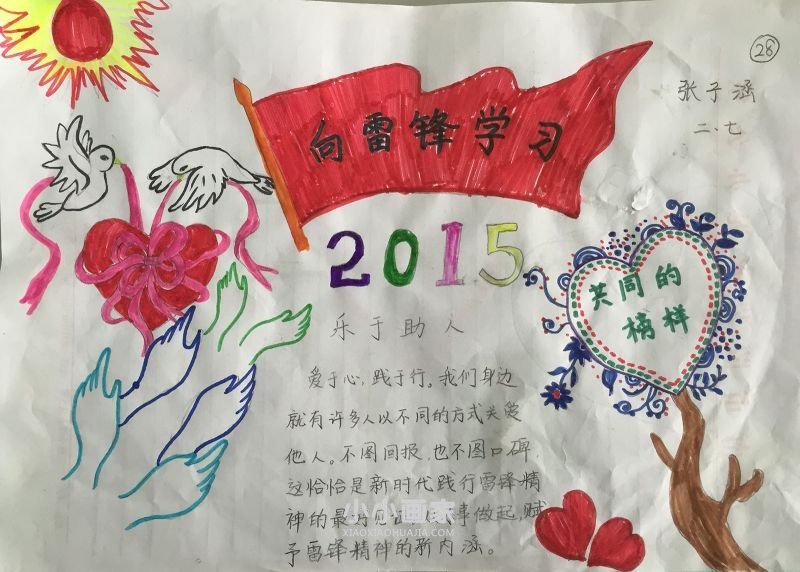 28
张子涵
二、七
向雷锋学习
2015
共同的
榜样
乐于助人
爱于心,践于行。我们身边
就有许多人以不同的方式关爱
他人。不图回报,也不图口碑,
这恰恰是新时代践行雷锋精
神的最 事做起,赋
予雷锋精神的新内涵。
小小画家
XIAOXIAOHUAJIA.COM